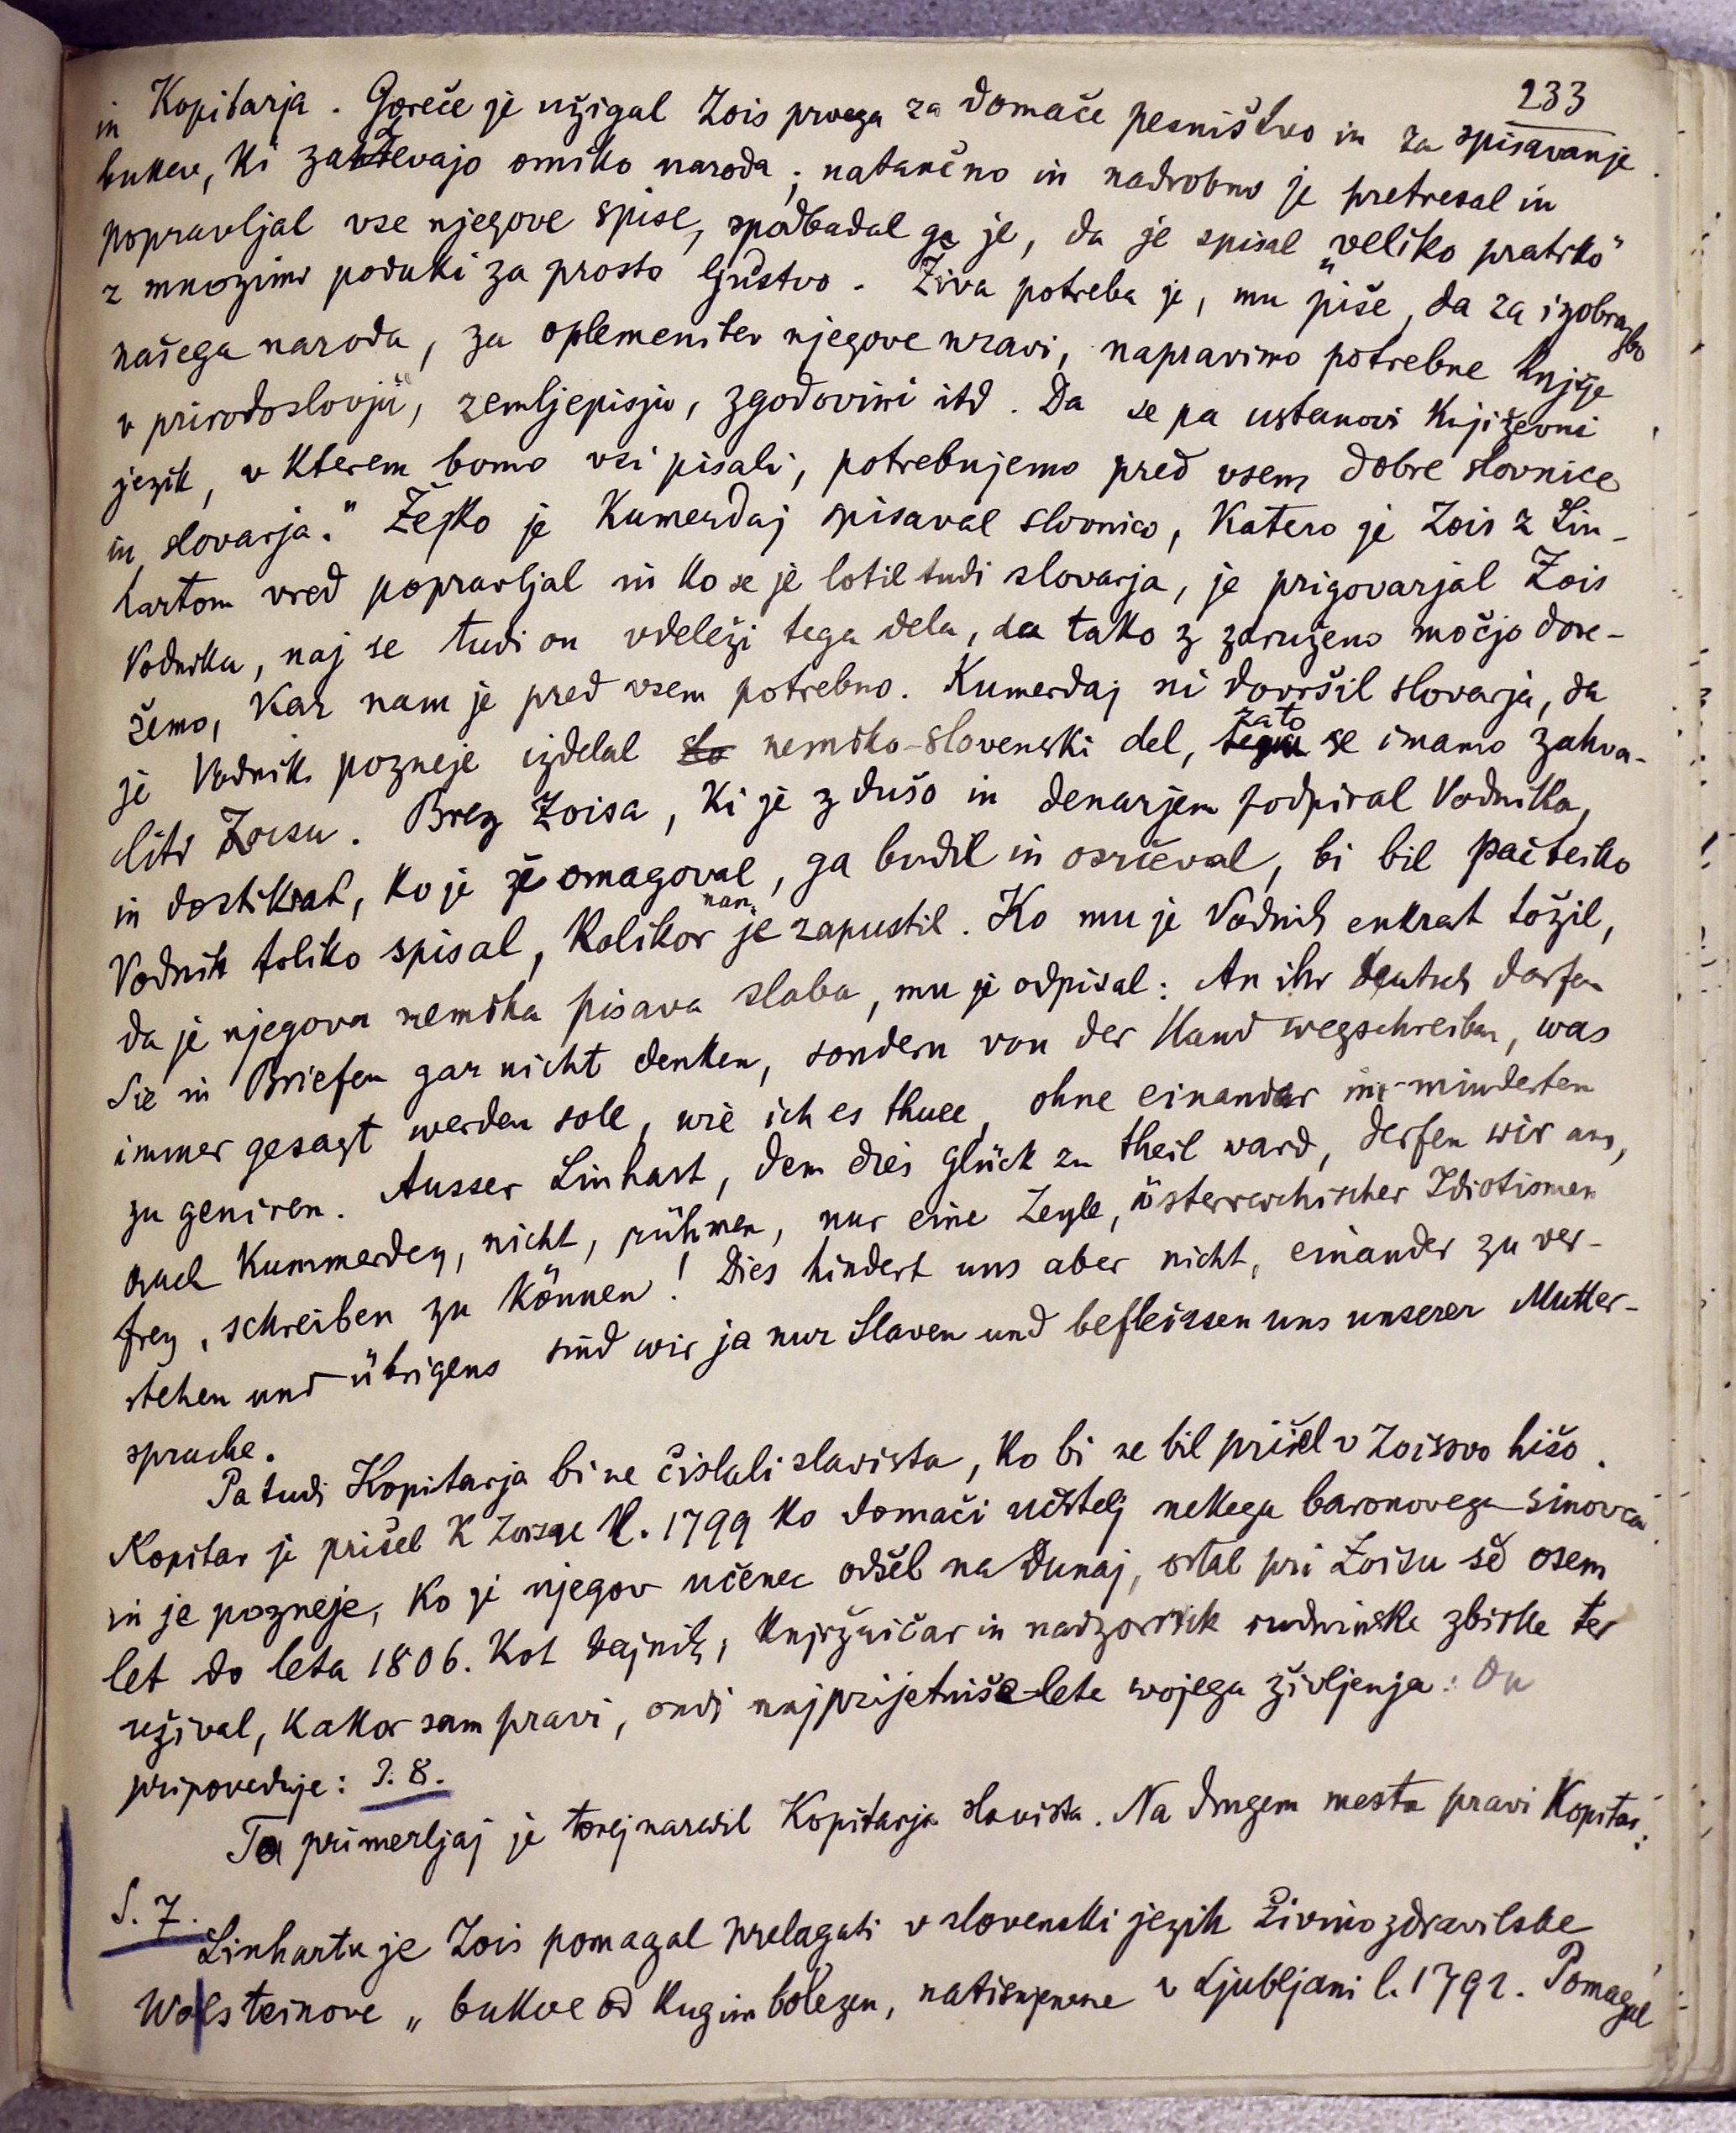 233
in Kopitarja. Goreče je užigal Zois prvega za domače pesništvo in za spisavanje
bukev, ki zahtevajo omiko naroda; natančno in nadrobno je pretresal in
popravljal vse njegove spise, spodbadal ga je, da je spisal „veliko pratiko“
z mnozimi poduki za prosto ljudstvo. Živa potreba je, mu „piše, da za izobrazbo
našega naroda, za oplemenitev njegove nravi, napravimo potrebne knjige
v prirodoslovju, zemljepisju, zgodovini itd. Da se pa ustanovi književni
jezik, v kterem bomo vsi pisali, potrebujemo pred vsem dobre slovnice
in slovarja.“ Težko je Kumerdaj spisaval slovnico, katero je Zois z Lin-
hartom vred popravljal in ko se je lotil tudi slovarja, je prigovarjal Zois
Vodnika, naj se tudi on vdeleži tega dela, da tako z združeno močjo dose-
žemo, kar nam je pred vsem potrebno. Kumerdaj ni dovršil slovarja, da
je Vodnik pozneje izdelal slo nemško-slovenski del, zato se imamo zahva-
liti Zoisu. Brez Zoisa, ki je z dušo in denarjem podpiral Vodnika,
in dostikrat, ko je že omagoval, ga budil in osrčeval, bi bil pač težko
Vodnik toliko spisal, kolikor nam je zapustil. Ko mu je Vodnik enkrat tožil,
da je njegova nemška pisava slaba, mu je odpisal: An ihr deutsch dorfen
Sie in Briefen gar nicht denken, sondern von der Hand wegschreiben, was
immer gesagt werden solle, wie ich es thue, ohne einander im mindesten
zu geniren. Ausser Linhart, dem dies Glück zu theil ward, derfen wir uns,
auch Kummerdey, nicht, rühmen, nur eine Zeyle, österreichischer Idiotismen
frey, schreiben zu können! Dies hindert uns aber nicht, einander zu ver-
stehen und übrigens sind wir ja nur Slaven und befleissen uns unserer Mutter-
sprache.
Pa tudi Kopitarja bi ne čislali slavista, ko bi ne bil prišel v Zoisovo hišo.
Kopitar je prišel k Zoisu l. 1799 ko domači učitelj nekega baronovega sinovca
in je pozneje, ko je njegov učenec odšel na Dunaj, ostal pri Zoisu še osem
let do leta 1806. Kot tajnik, knjižničar in nadzornik rudninske zbirke ter
užival, kakor sam pravi, ondi najprijetniše leta svojega življenja: On
pripoveduje: S. 8.
Ta primerljaj je torej naredil Kopitarja slavista. Na drugem mestu pravi Kopitar:
S. 7.
Linhartu je Zois pomagal prelagati v slovenski jezik živinozdravilske
Wolsteinove „bukve od kug in bolezen, natisnjene v Ljubljani l. 1792. Pomagal